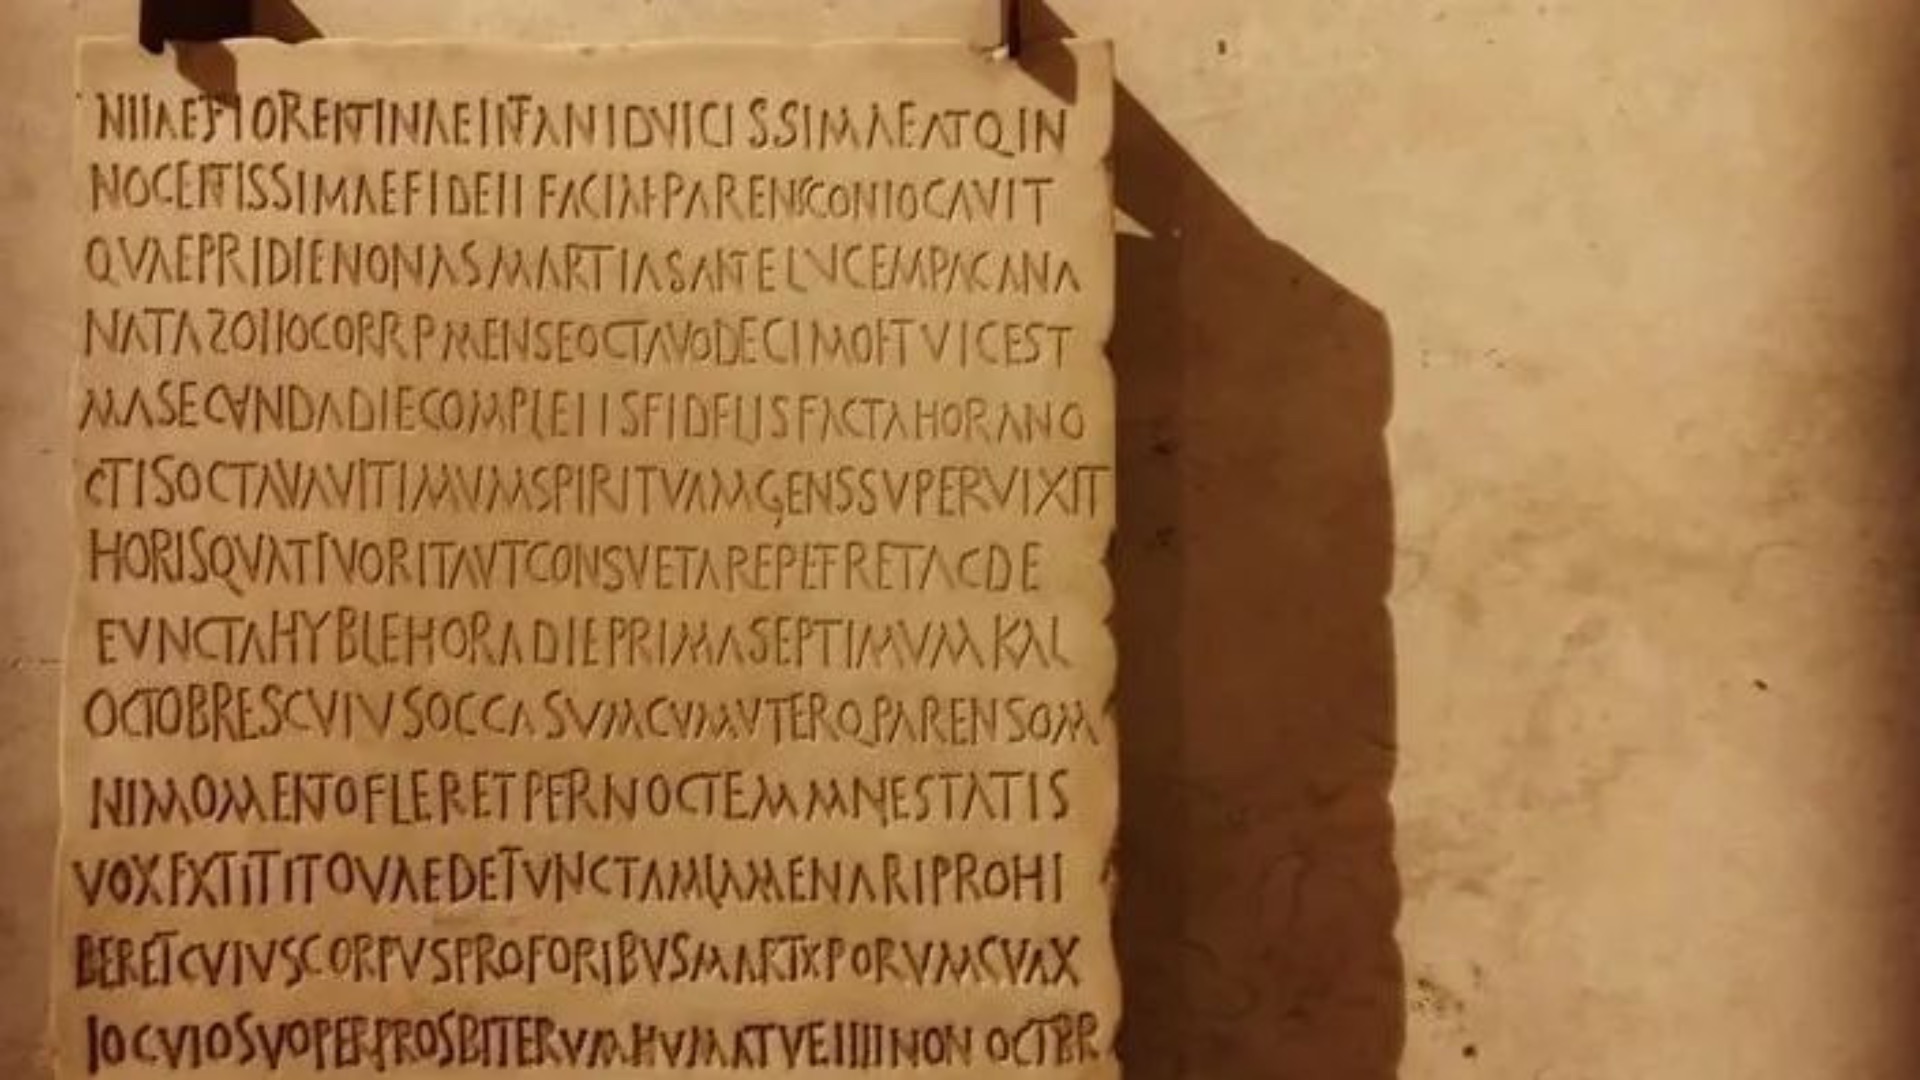 NIIAE FLORENTINAE INFANI DVLCISSIMAE ATQ IN
NOCENTISSIMAE FIDELI FACTAE PARENS CONLOCAVIT
QVAE PRIDIE NONAS MARTIAS ANTE LVCEM PACANA
NATA ZOILO CORR P MENSE OCTAVO DECIMO ET VICEST
MA SECVNDA DIE COMPLEIIS FIDELIS FACTA HORA NO
CTIS OCTAVA VLTIMVM SPIRITVM AGENS SVPERVIXIT
HORIS QVATTVOR ITA VT CONSVETA REPETERET AC DE
FVNCTA HYBLE HORA DIE PRIMA SEPTIMVM KAL
OCTOBRES CVIVS OCCASVM CVM VTERQ PARENS OM
NI MOMENTO FLERET PER NOCTEM MAIESTATIS
VOX EXTITIT QVAE DEFVNCTAM LAMENARI PROHI
BERET CVIVS CORPVS PRO FORIBVS MARTXPORVM CVM
LOCVLO SVO PER PROSBITERVM HVMATV E IIII NON OCTBR